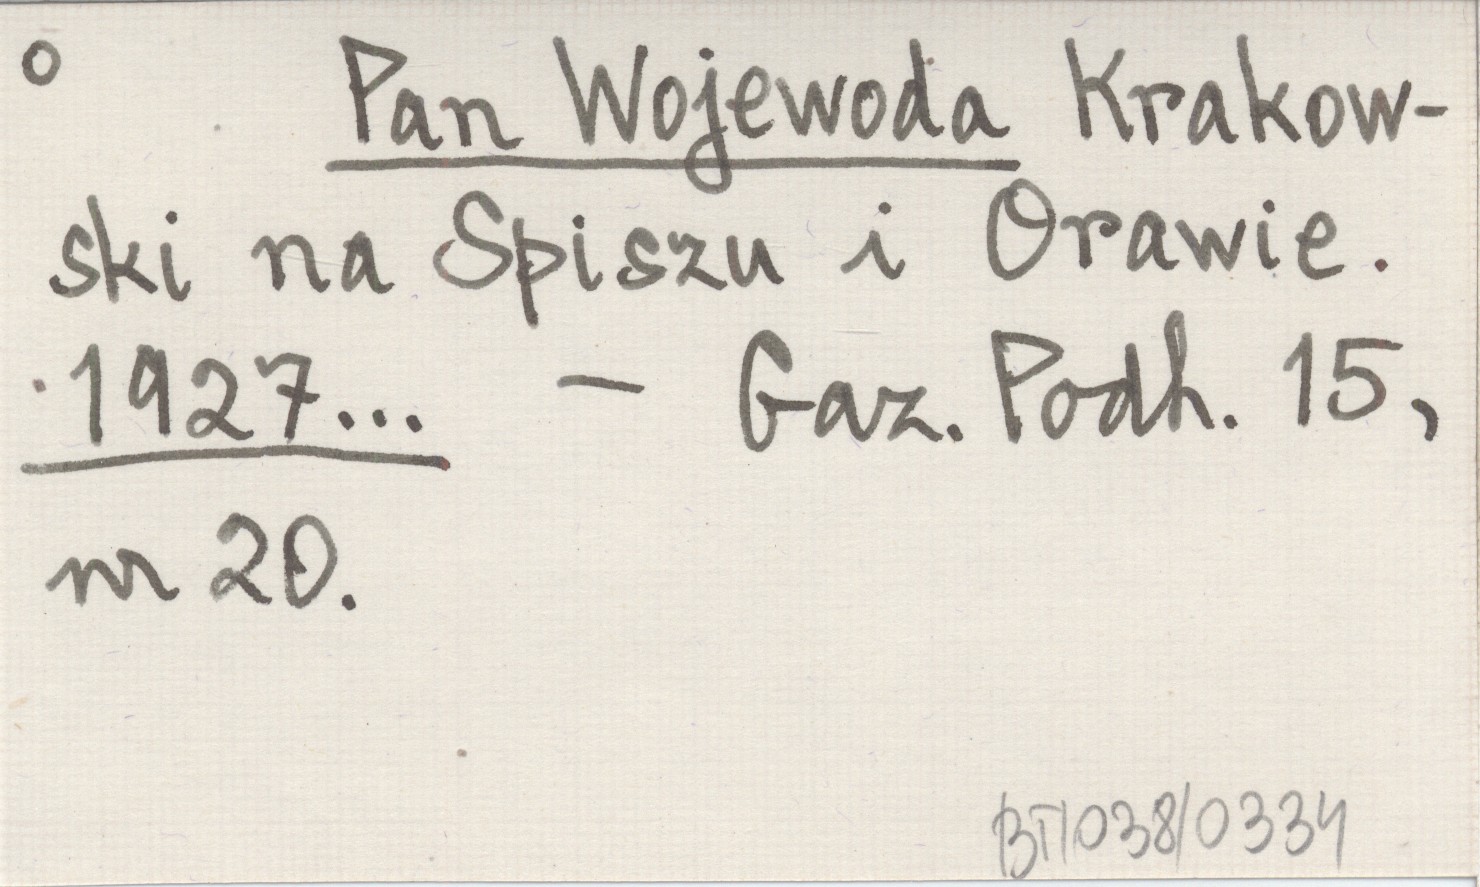 o Pan Wojewoda Krakow-
ski na Spiszu i Orawie.
1927... - Gaz. Podh. 15,
nr 20.
BT/038/0334